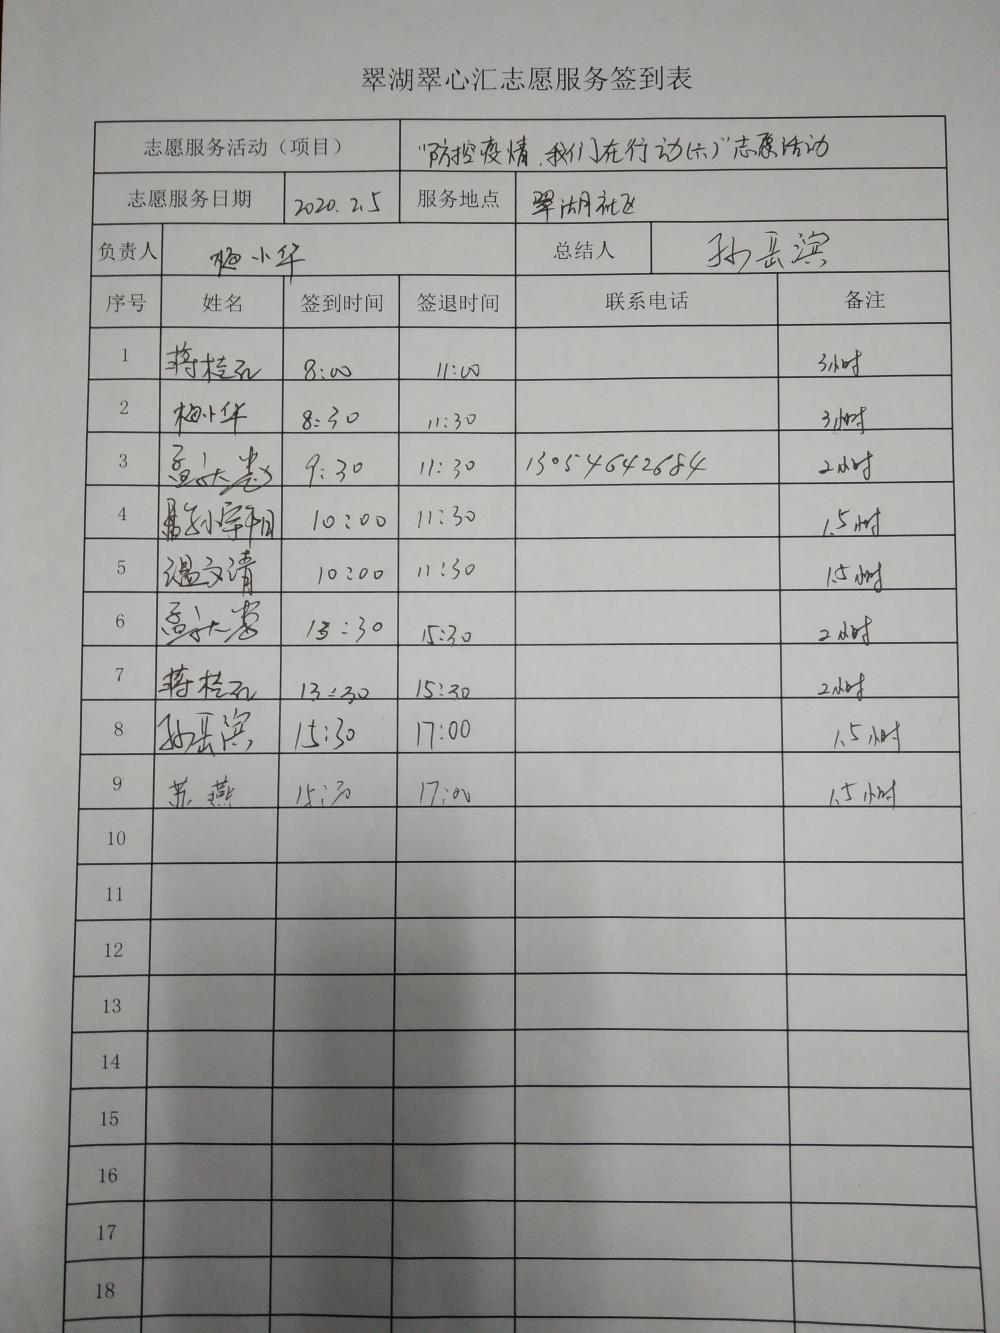 翠湖翠心汇志愿服务签到表
志愿服务活动（项目） “防控疫情、我们在行动(六)”志愿活动
志愿服务日期 2020.2.5 服务地点 翠湖社区
负责人 梅小华 总结人 孙岳滨
序号 姓名 签到时间 签退时间 联系电话 备注
1 蒋桂孔 8:00 11:00 3小时
2 梅小华 8:30 11:30 3小时
3 9:30 11:30 13054642684 2小时
4 10:00 11:30 1.5小时
5 温文清 10:00 11:30 1.5小时
6 13:30 15:30 2小时
7 蒋桂孔 13:30 15:30 2小时
8 孙岳滨 15:30 17:00 1.5小时
9 苏燕 15:30 17:00 1.5小时
10
11
12
13
14
15
16
17
18